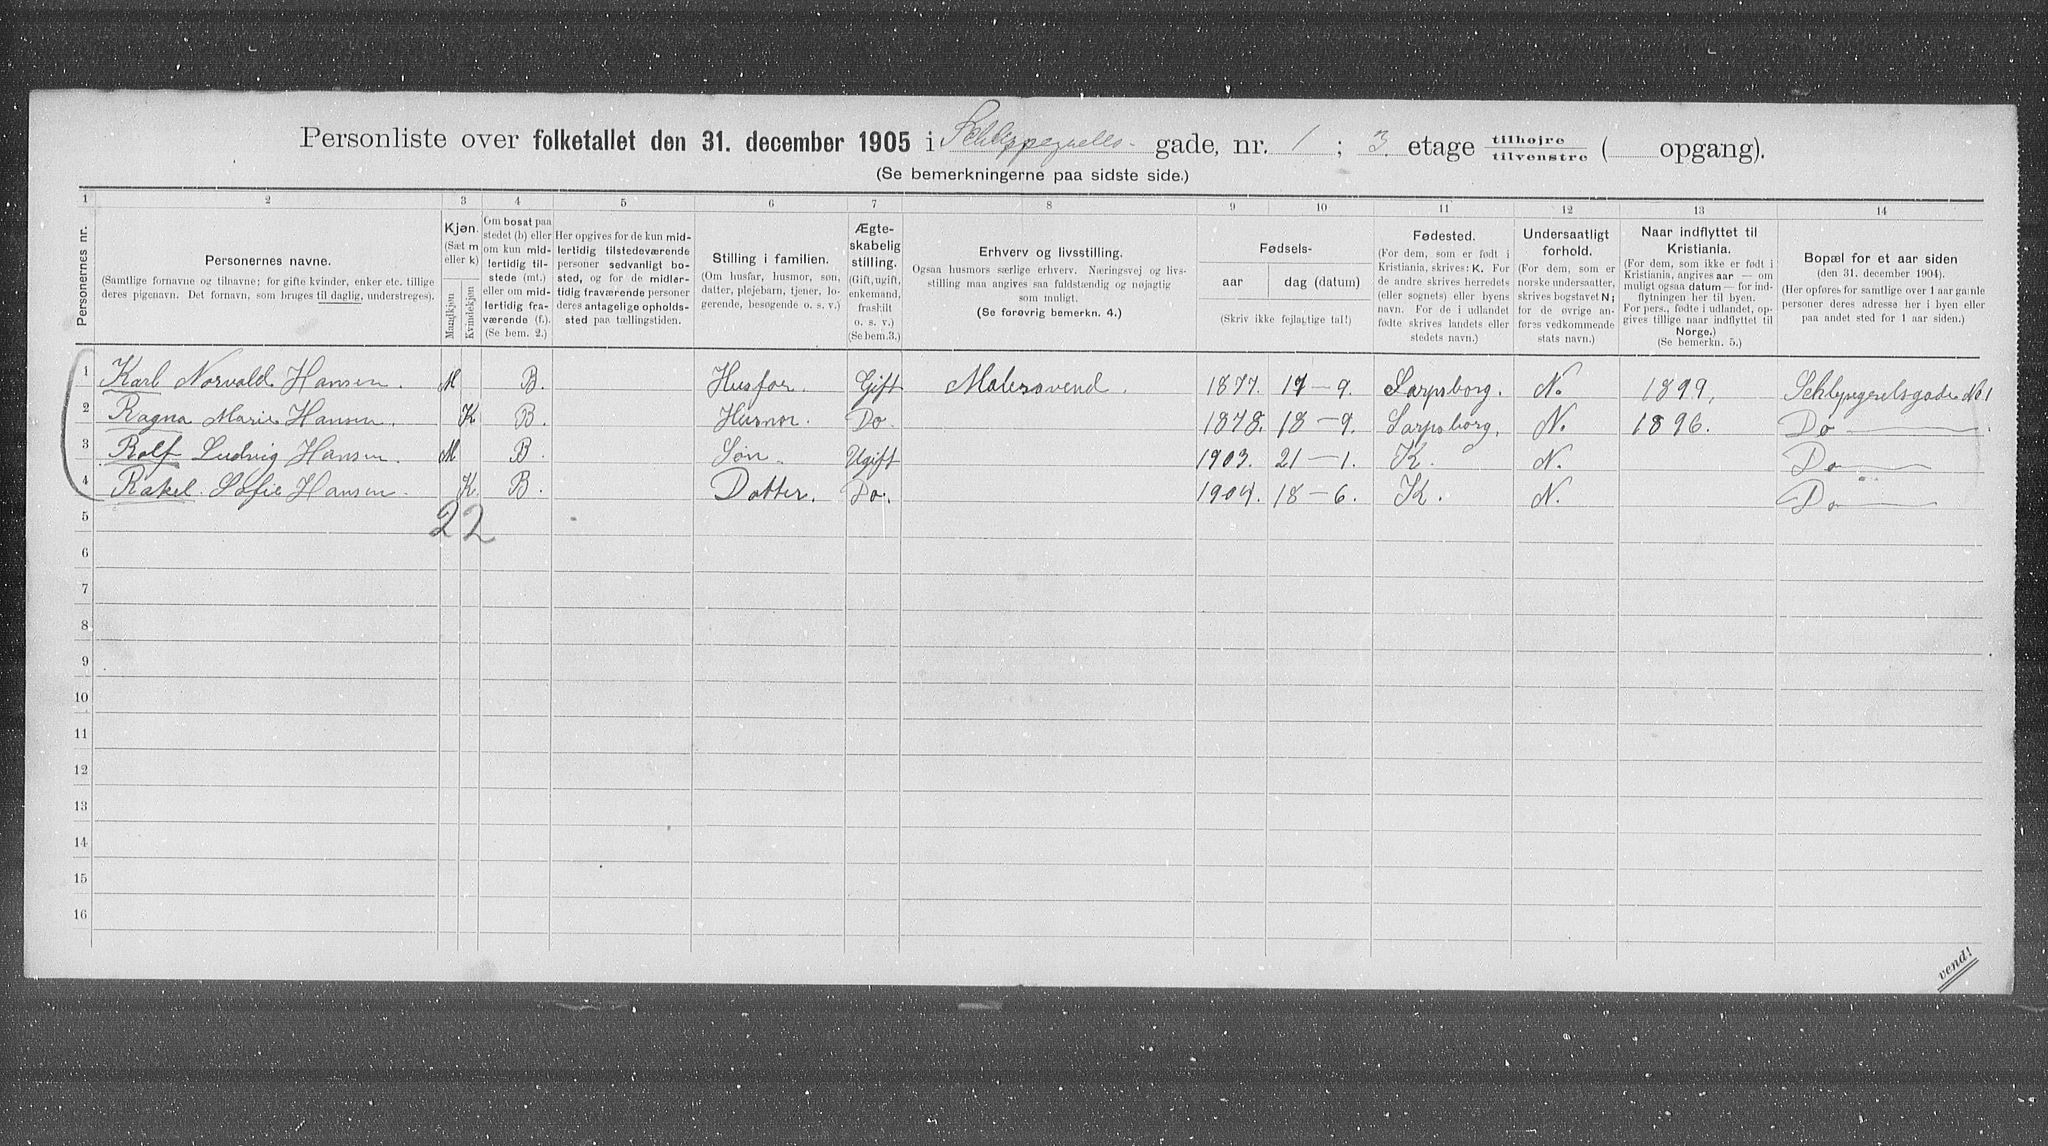 Personliste over folketallet den 31. december 1905 i Schleppegrells- gade, nr. 1 ; 3 etage tilhøjre / tilvenstre ( opgang).
(Se bemerkningerne paa sidste side.)
1 2 3 4 5 6 7 8 9 10 11 12 13 14
Personernes nr.
Personernes navne.
(Samtlige fornavne og tilnavne; for gifte kvinder, enker etc. tillige
deres pigenavn. Det fornavn, som bruges til daglig, understreges).
Kjøn.
(Sæt m
eller k)
Mandkjøn
Kvindekjøn
Om bosat paa
stedet (b) eller
om kun mid-
lertidig til-
stede (mt.)
eller om mid-
lertidig fra-
værende (f.).
(Se bem. 2.)
Her opgives for de kun mid-
lertidig tilstedeværende
personer sedvanlig bo-
sted, og for de midler-
tidig fraværende personer
deres antagelige opholds-
sted paa tællingstiden.
Stilling i familien.
(Om husfar, husmor, søn,
datter, plejebarn, tjener, lo-
gerende, besøgende o. s. v.)
Ægte-
skabelig
stilling.
(Gift, ugift,
enkemand,
fraskilt
o. s. v.)
(Se bem.3.)
Erhverv og livsstilling.
Ogsaa husmors særlige erhverv. Næringsvej og livs-
stilling maa angives saa fuldstændig og nøjagtig
som muligt.
(Se forøvrig bemerkn. 4.)
Fødsels-
aar dag (datum)
(Skriv ikke fejlagtige tal!)
Fødested.
(For dem, som er født i
Kristiania, skrives: K. For
de andre skrives herredets
(eller sognets) eller byens
navn. For de i udlandet
fødte skrives landets eller
stedets navn.)
Undersaatligt
forhold.
(For dem, som er
norske undersaatter,
skrives bogstavet N;
for de øvrige an-
føres vedkommende
stats navn.)
Naar indflyttet til
Kristiania.
(For dem, som ikke er født i
Kristiania, angives aar — om
muligt ogsaa datum — for ind-
flytningen her til byen.
For pers., fødte i udlandet, op-
gives tillige naar indflyttet til
Norge.)
(Se bemerkn. 5.)
Bopæl for et aar siden
(den 31. december 1904).
(Her opføres for samtlige over 1 aar gamle
personer deres adresse her i byen eller
paa andet sted for 1 aar siden.)
1 Karl Norvald Hansen. M B. Husfar. Gift Malersvend. 1877. 17-9. Sarpsborg. N. 1899. Schleppegrelsgade No 1
2 Ragna Marie Hansen. K B. Husmor. Do. 1878. 18-9. Sarpsborg. N. 1896. Do
3 Rolf Ludvig Hansen. M B. Søn. Ugift 1903. 21-1. K. N. Do
4 Rakel Sofie Hansen. K B. Datter. Do. 1904. 18-6. K. N. Do
5 2 2
6
7
8
9
10
11
12
13
14
15
16
vend!